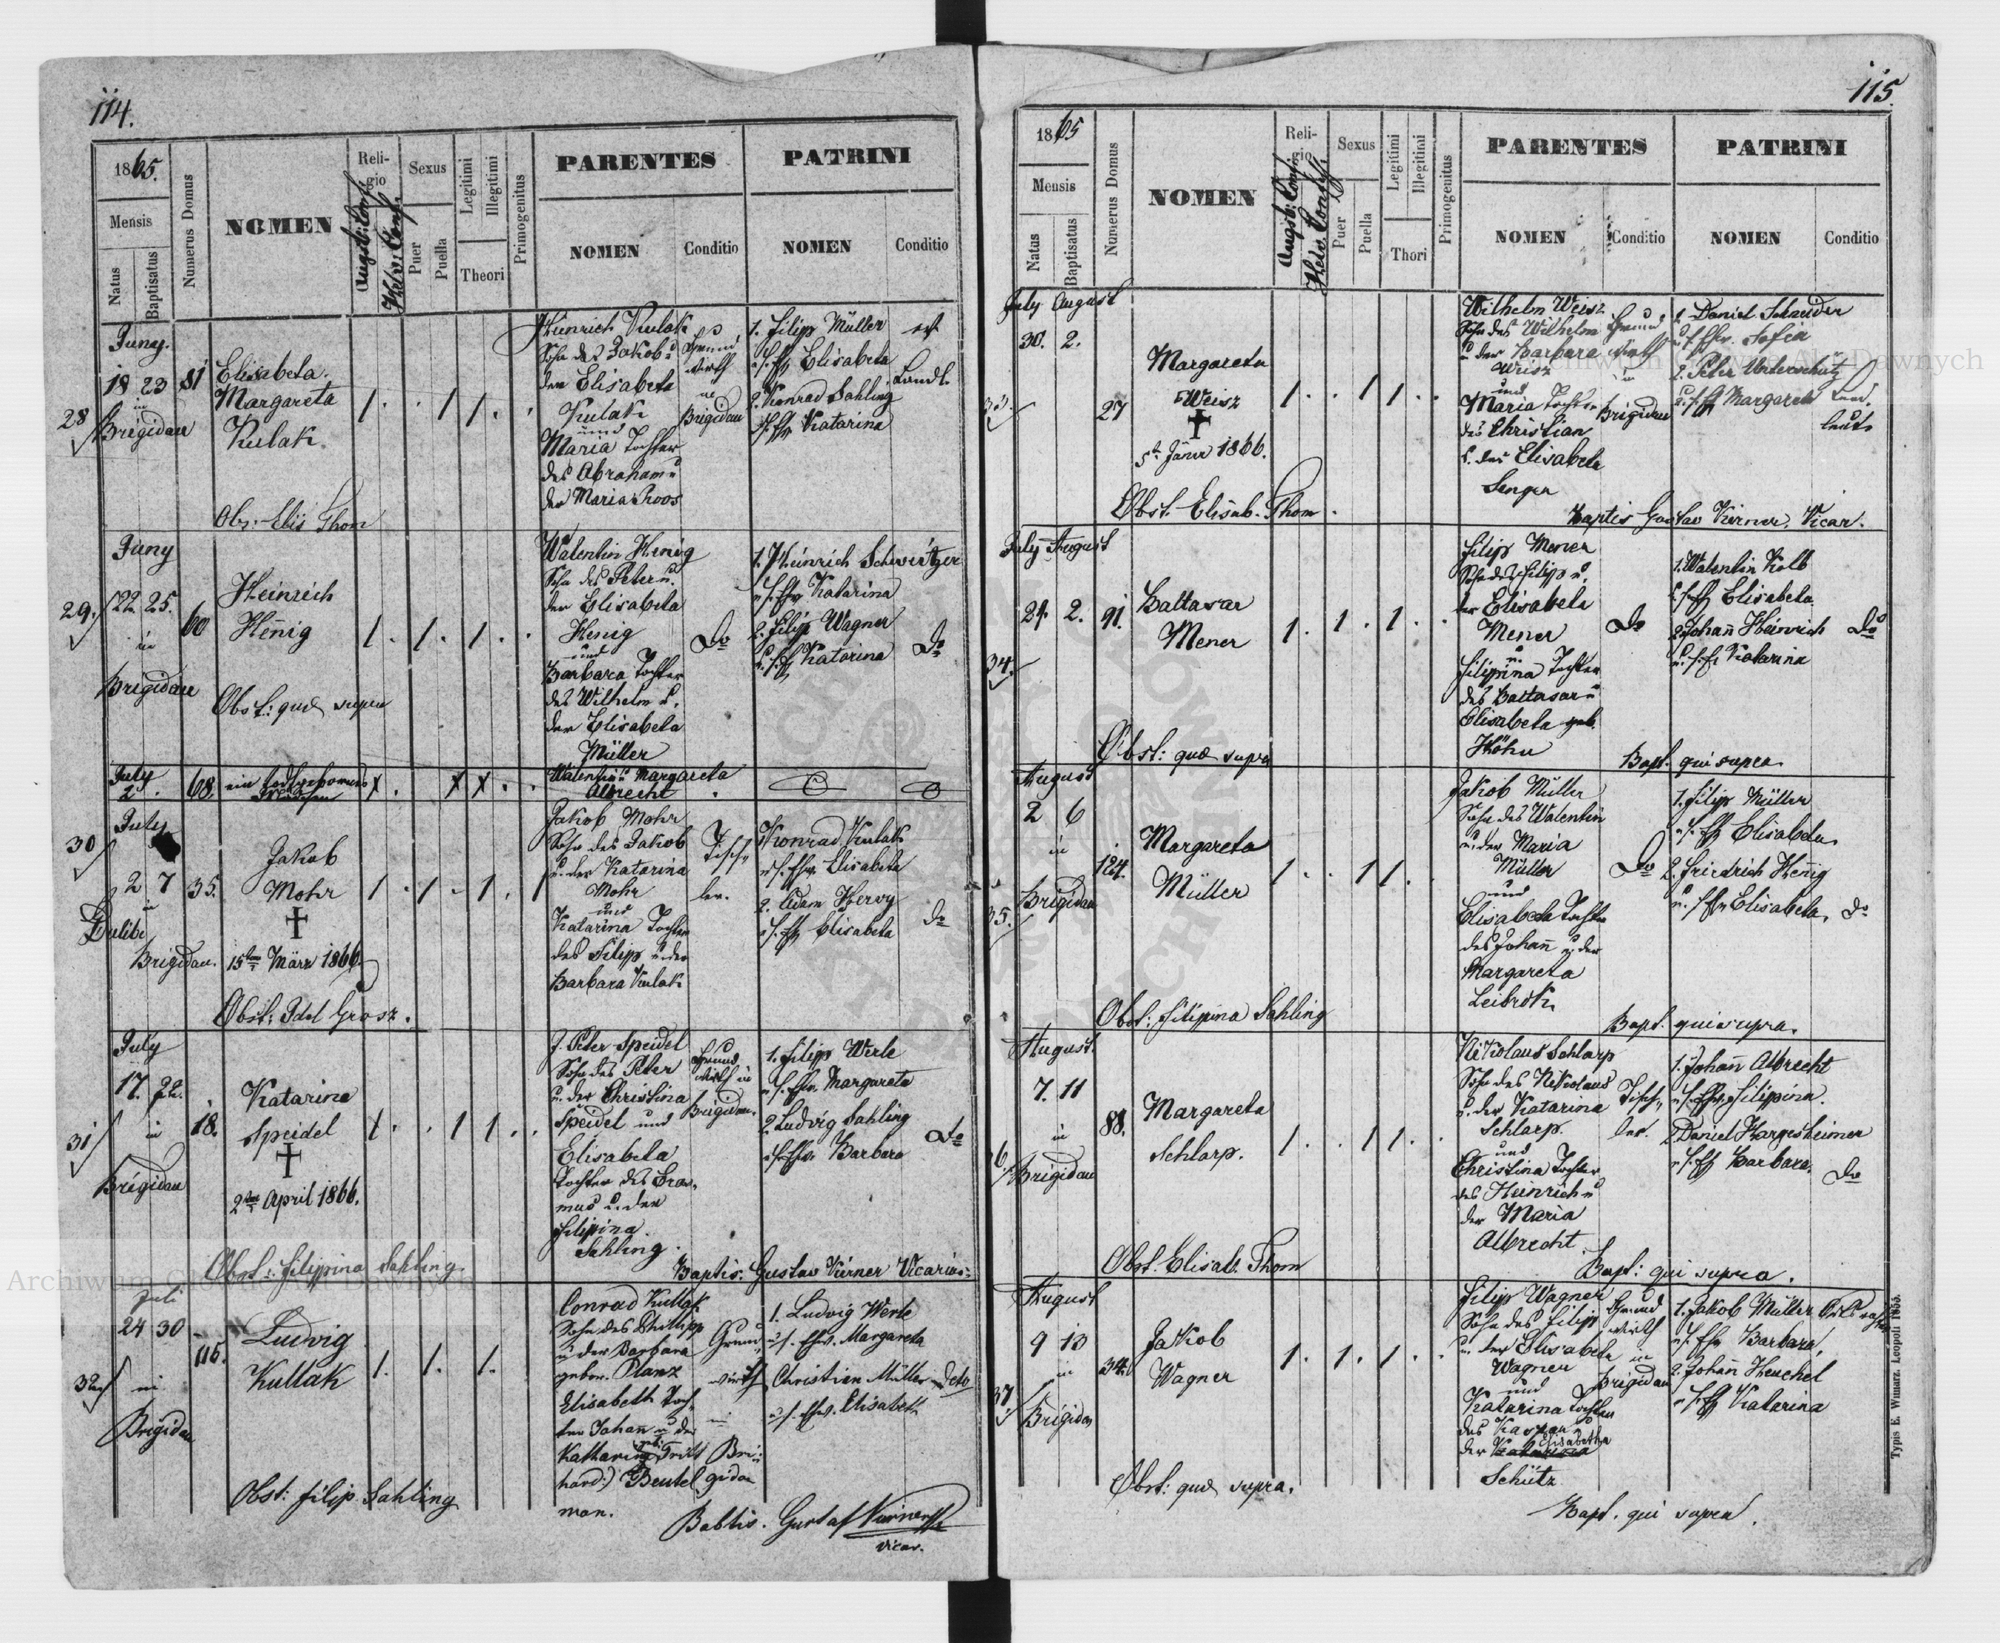 114.
1865.
Mensis
Natus
Baptisatus
Numerus Domus
NOMEN
Religio
Augsb: Conf.
Helv. Conf.
Sexus
Puer
Puella
Legitimi
Illegitimi
Theori
Primogenitus
PARENTES
NOMEN
Conditio
PATRINI
NOMEN
Conditio
28
Juny.
18 23
in
Brigidau
81
Elisabeta
Margareta
Kulak.
1 . . 1 1 . .
Heinrich Kulak
Sohn des Jakob u
der Elisabeta
Kulak
und
Maria Tochter
des Abraham u
der Maria Roos
Grund
wirth
Brigidau
1. Filip Müller
u. s. Ehw Elisabeta
2. Konrad Sahling
Katarina
Landl.
Obs: Elis Thom
29.
Juny
22. 25.
in
Brigidau
60
Heinrich
Hen̄ig
1 . 1 . 1 . .
Walentin Henig
Sohn des Peter u.
der Elisabeta
Henig
und
Barbara Tochter
des Wilhelm u.
der Elisabeta
Müller
Do
1. Heinrich Schwietzer
u. s. Ehw Katarina
2. Filip Wagner
u. s. Katarina
Do
Obst: quae supra
July
2
68.
ein todtgebornes
Mädchen
x . x x . .
Walentin u Margareta
Albrecht
30
July
2 7
in
Dulibe
Brigidau.
35.
Jakob
Mohr
✝
15ten März 1866
1 . 1 . 1 . 1
Jakob Mohr
Sohn des Jakob
u. der Katarina
Mohr
und
Katarina Tochter
des Filip u. der
Barbara Kulak
Tisch
ler.
Konrad Kulak
u. s. Ehw. Elisabeta
2. Adam Hervy
u. s. Elisabeta
Do
Obst: Idel Grosz.
31
July
17. 22.
in
Brigidau
18.
Katarina
Speidel
✝
2ten April 1866.
1 . . 1 1 . .
J. Peter Speidel
Sohn des Peter
u. der Christina
Speidel und
Elisabeta
Tochter des Eras-
mus u. der
Filipina
Sahling.
Grund
wirth in
Brigidau.
1. Filip Werle
u. s. Ehw. Margareta
2. Ludwig Sahling
u. s. Ehw. Barbara
Do
Obst: Filippina Sahling.
Baptis: Gustav Kirner Vicarius:
32
Juli
24 30
in
Brigidau
115.
Ludwig
Kullak
1. 1. 1.
Conrad Kullak
Sohn des Phillipp
u der Barbara
gebor. Planz
Elisabeth Toch-
ter Johan u der
Katharina
hard.) Beutel
man.
Grund
wirth
in
Bri-
gidau
1. Ludwig Werle
u. s. Ehw. Margareta
Christian Müller
u. s. Ehw. Elisabeth
Deto
Obst: Filip. Sahling
Babtis. Gustaf Kirner
Vicar.
115.
1865
Mensis
Natus
Baptisatus
Numerus Domus
NOMEN
Religio
Augsb: Conf.
Helv. Conf.
Sexus
Puer
Puella
Legitimi
Illegitimi
Thori
Primogenitus
PARENTES
NOMEN
Conditio
PATRINI
NOMEN
Conditio
33.
July August
30. 2.
27
Margareta
Weisz
✝
5t Jäner 1866.
1 . . 1 1 . .
Wilhelm Weisz
Sohn des Wilhelm
u der Barbara
Weisz
und
Maria Tochter
des Christian
u. der Elisabeta
Senger
Grund
wirth
in
Brigidau
1. Daniel Schneider
u. s. Ehw. Sofia
2. Peter Unterschütz
u. s. Margareta
Land-
leute
Obst. Elisab. Thom.
Baptis Gustav Kirner. Vicar.
34.
July August
24. 2.
91.
Baltasar
Mener
1 . 1 . 1 . .
Filip Mener
Sohn des Filip u.
der Elisabeta
Mener
u.
Filipina Tochter
des Baltasar u
Elisabeta geb.
Höhn
Do
1. Walentin Kolb
u. s. Elisabeta
2. Johan̄ Heinrich
u. s. Katarina
Do
Obst: quae supra
Bapt. qui supra.
35.
August
2 6
in
Brigidau
124.
Margareta
Müller
1 . . 1 1 .
Jakob Müller
Sohn des Walentin
u. der Maria
Müller
und
Elisabeta Tochter
des Johan̄ u. der
Margareta
Leibrok.
Do
1. Filip Müller
u. s. Elisabeta.
2. Friedrich Hen̄ig
u. s. Elisabeta.
Do
Obst: Filipina Sahling
Bapt. qui supra.
August
7. 11
in
Brigidau
88.
Margareta
Schlarp.
1 . . 1 1 . .
Nikolaus Schlarp
Sohn des Nikolaus
u. der Katarina
Schlarp.
und
Christina Tochter
des Heinrich u
der Maria
Albrecht.
Tisch-
ler.
1. Johan̄ Albrecht
u. s. Ehw. Filippina.
2. Daniel Hargesheimer
u. s. Barbara.
Do
Obst. Elisab. Thom
Bapt: qui supra.
37.
August
9 13
in
Brigidau
34.
Jakob
Wagner
1 . 1 . 1 . .
Filip Wagner
Sohn des Filip
u. der Elisabeta
Wagner
und
Katarina Tochter
des Kaspar u
der Elisabetha
Schütz
Grund
wirth
in
Brigidau
1. Jakob Müller
u. s. Ehw Barbara,
2. Johan̄ Heuchel
u. s. Katarina
Obst: quae supra.
Bapt. qui supra.
Typis E. Winiarz Leopoli 1855.
Archiwum Główne Akt Dawnych
Archiwum Główne Akt Dawnych